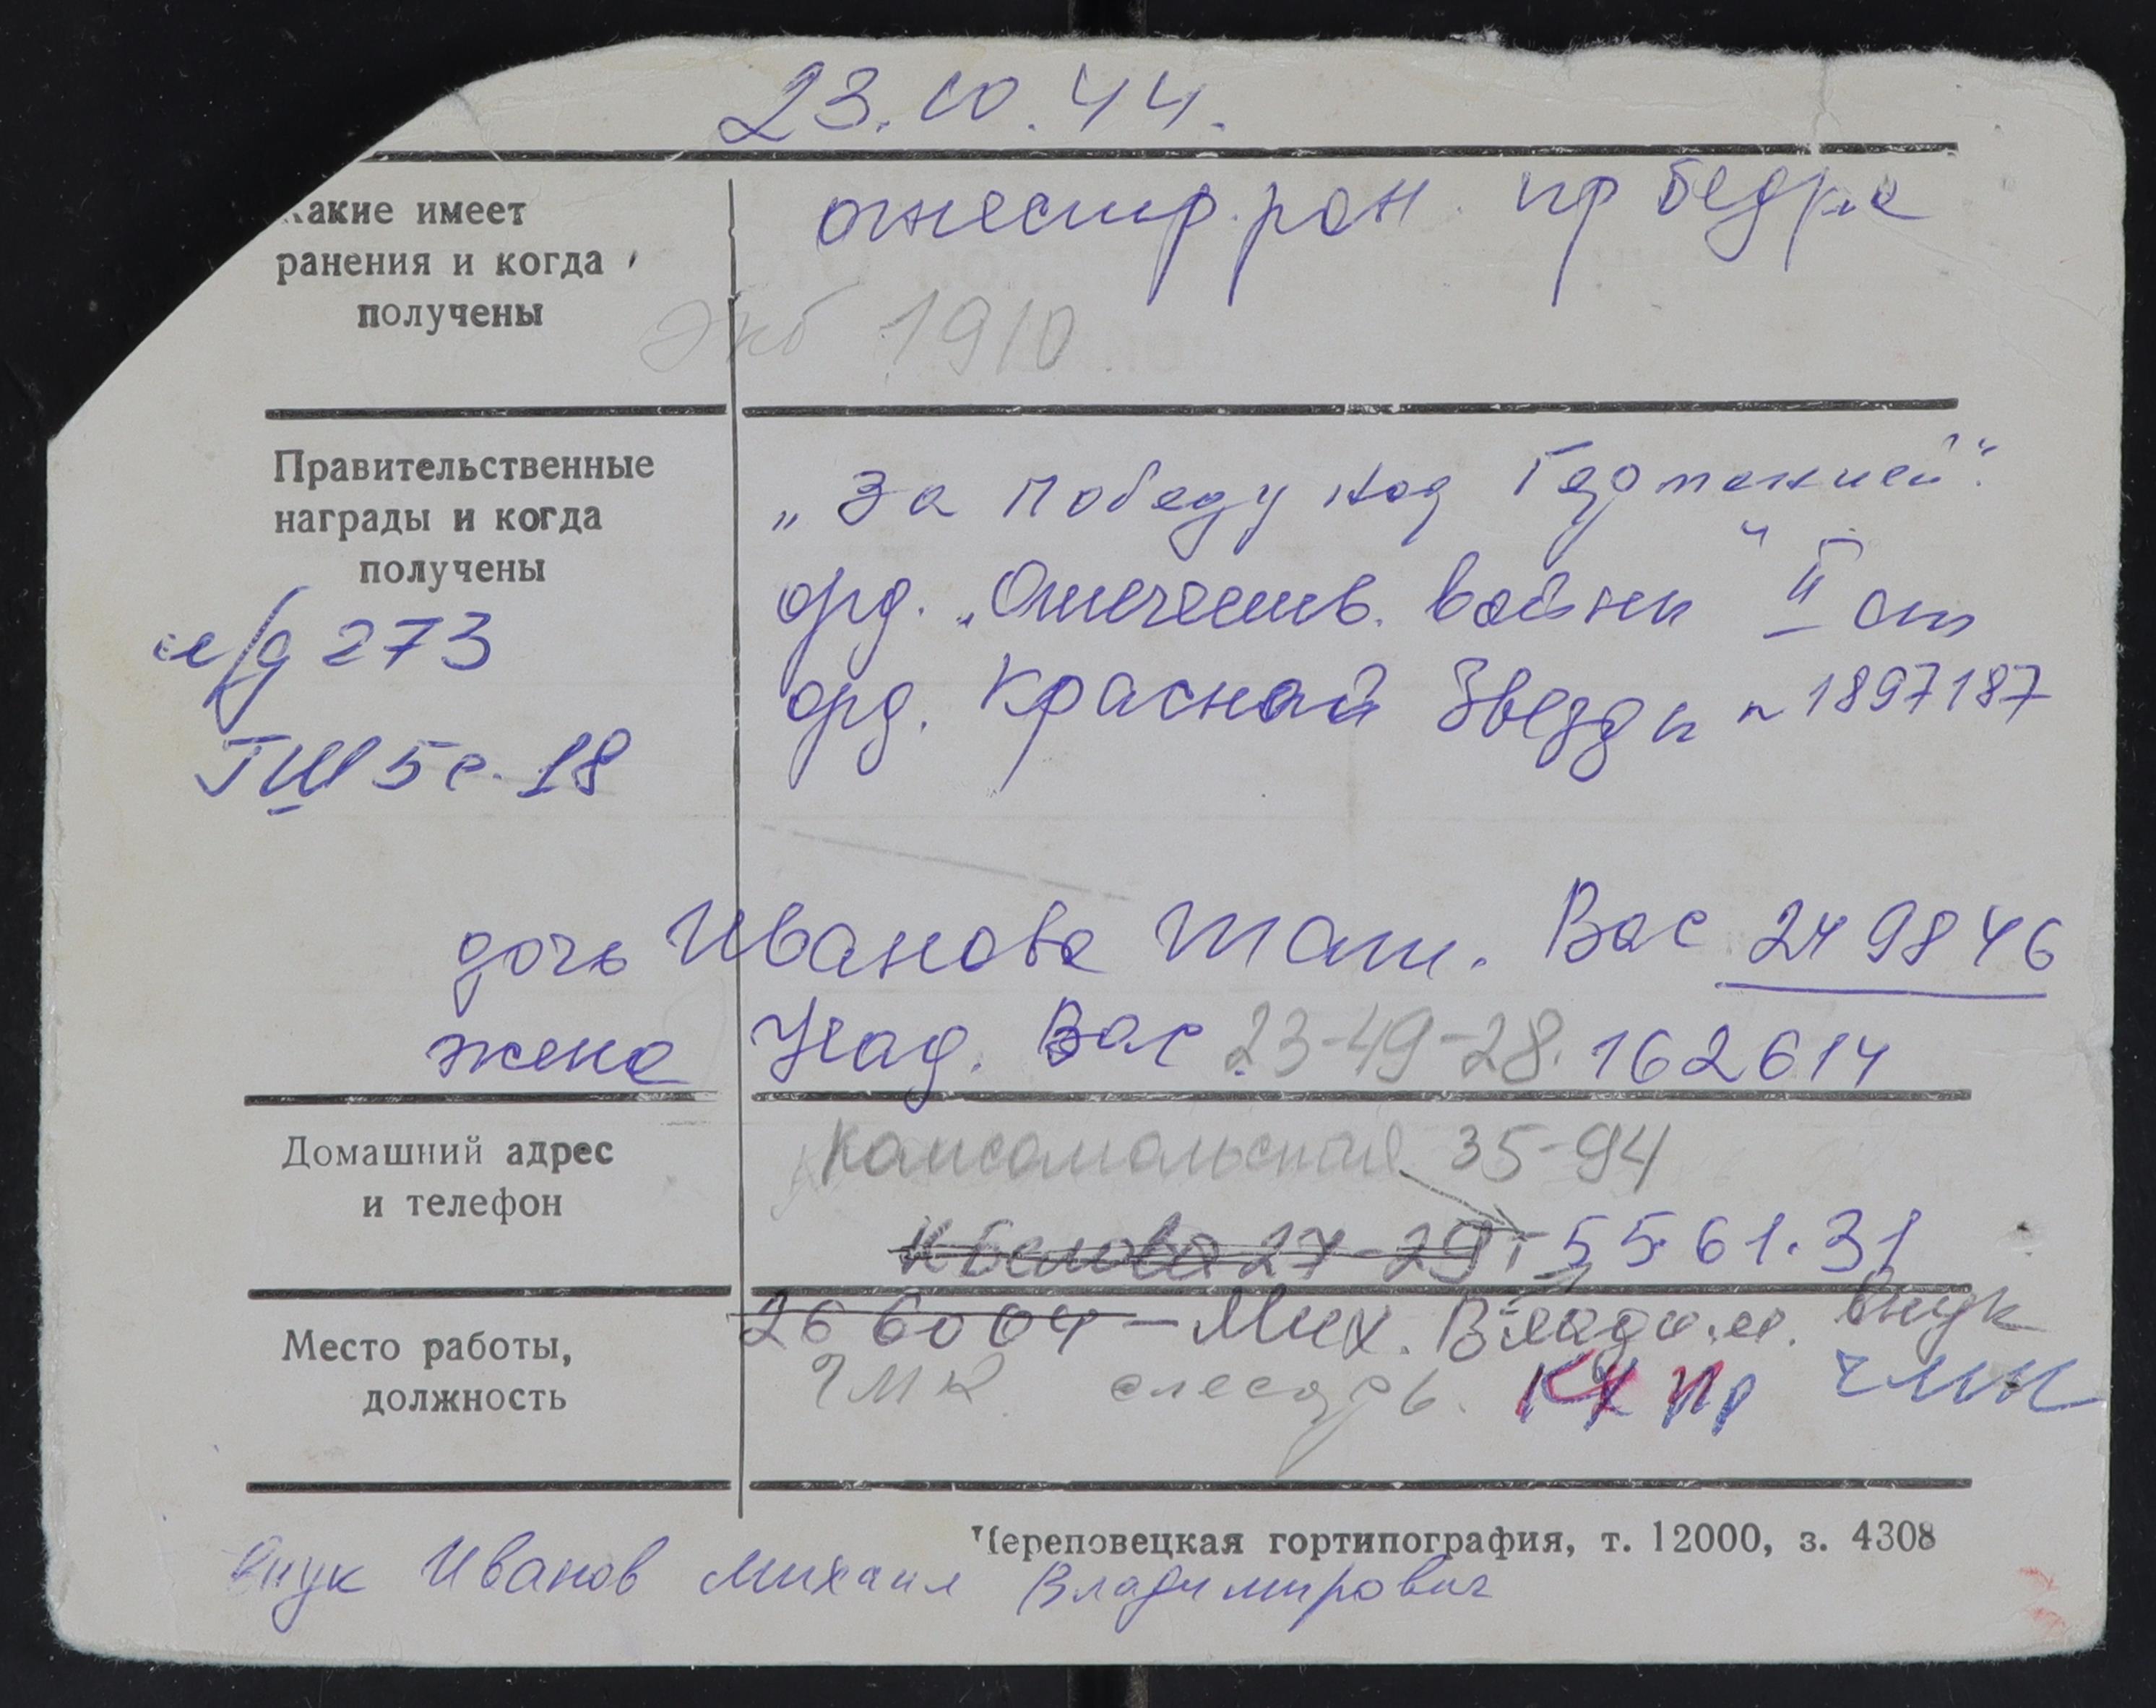 23.10.44.
Какие имеет
ранения и когда
получены
огнестр. ран. пр бедра
1910
Правительственные
награды и когда
получены
„За победу над Германией".
орд. „Отечеств. войны" II ст
орд. Красной Звезды № 1897187
и/д 273
5 с. 18
дочь Иванова Тат. Вас 249846
жена Над. Вас 23-49-28. 162614
Домашний адрес
и телефон
Комсомольская 35-94
К Белова 27-29 т 55.61.31
Место работы,
должность
266004 - Мих. Владим. внук
ЧМК слесарь.
Череповецкая гортипография, т. 12000, з. 4308
Внук Иванов Михаил Владимирович